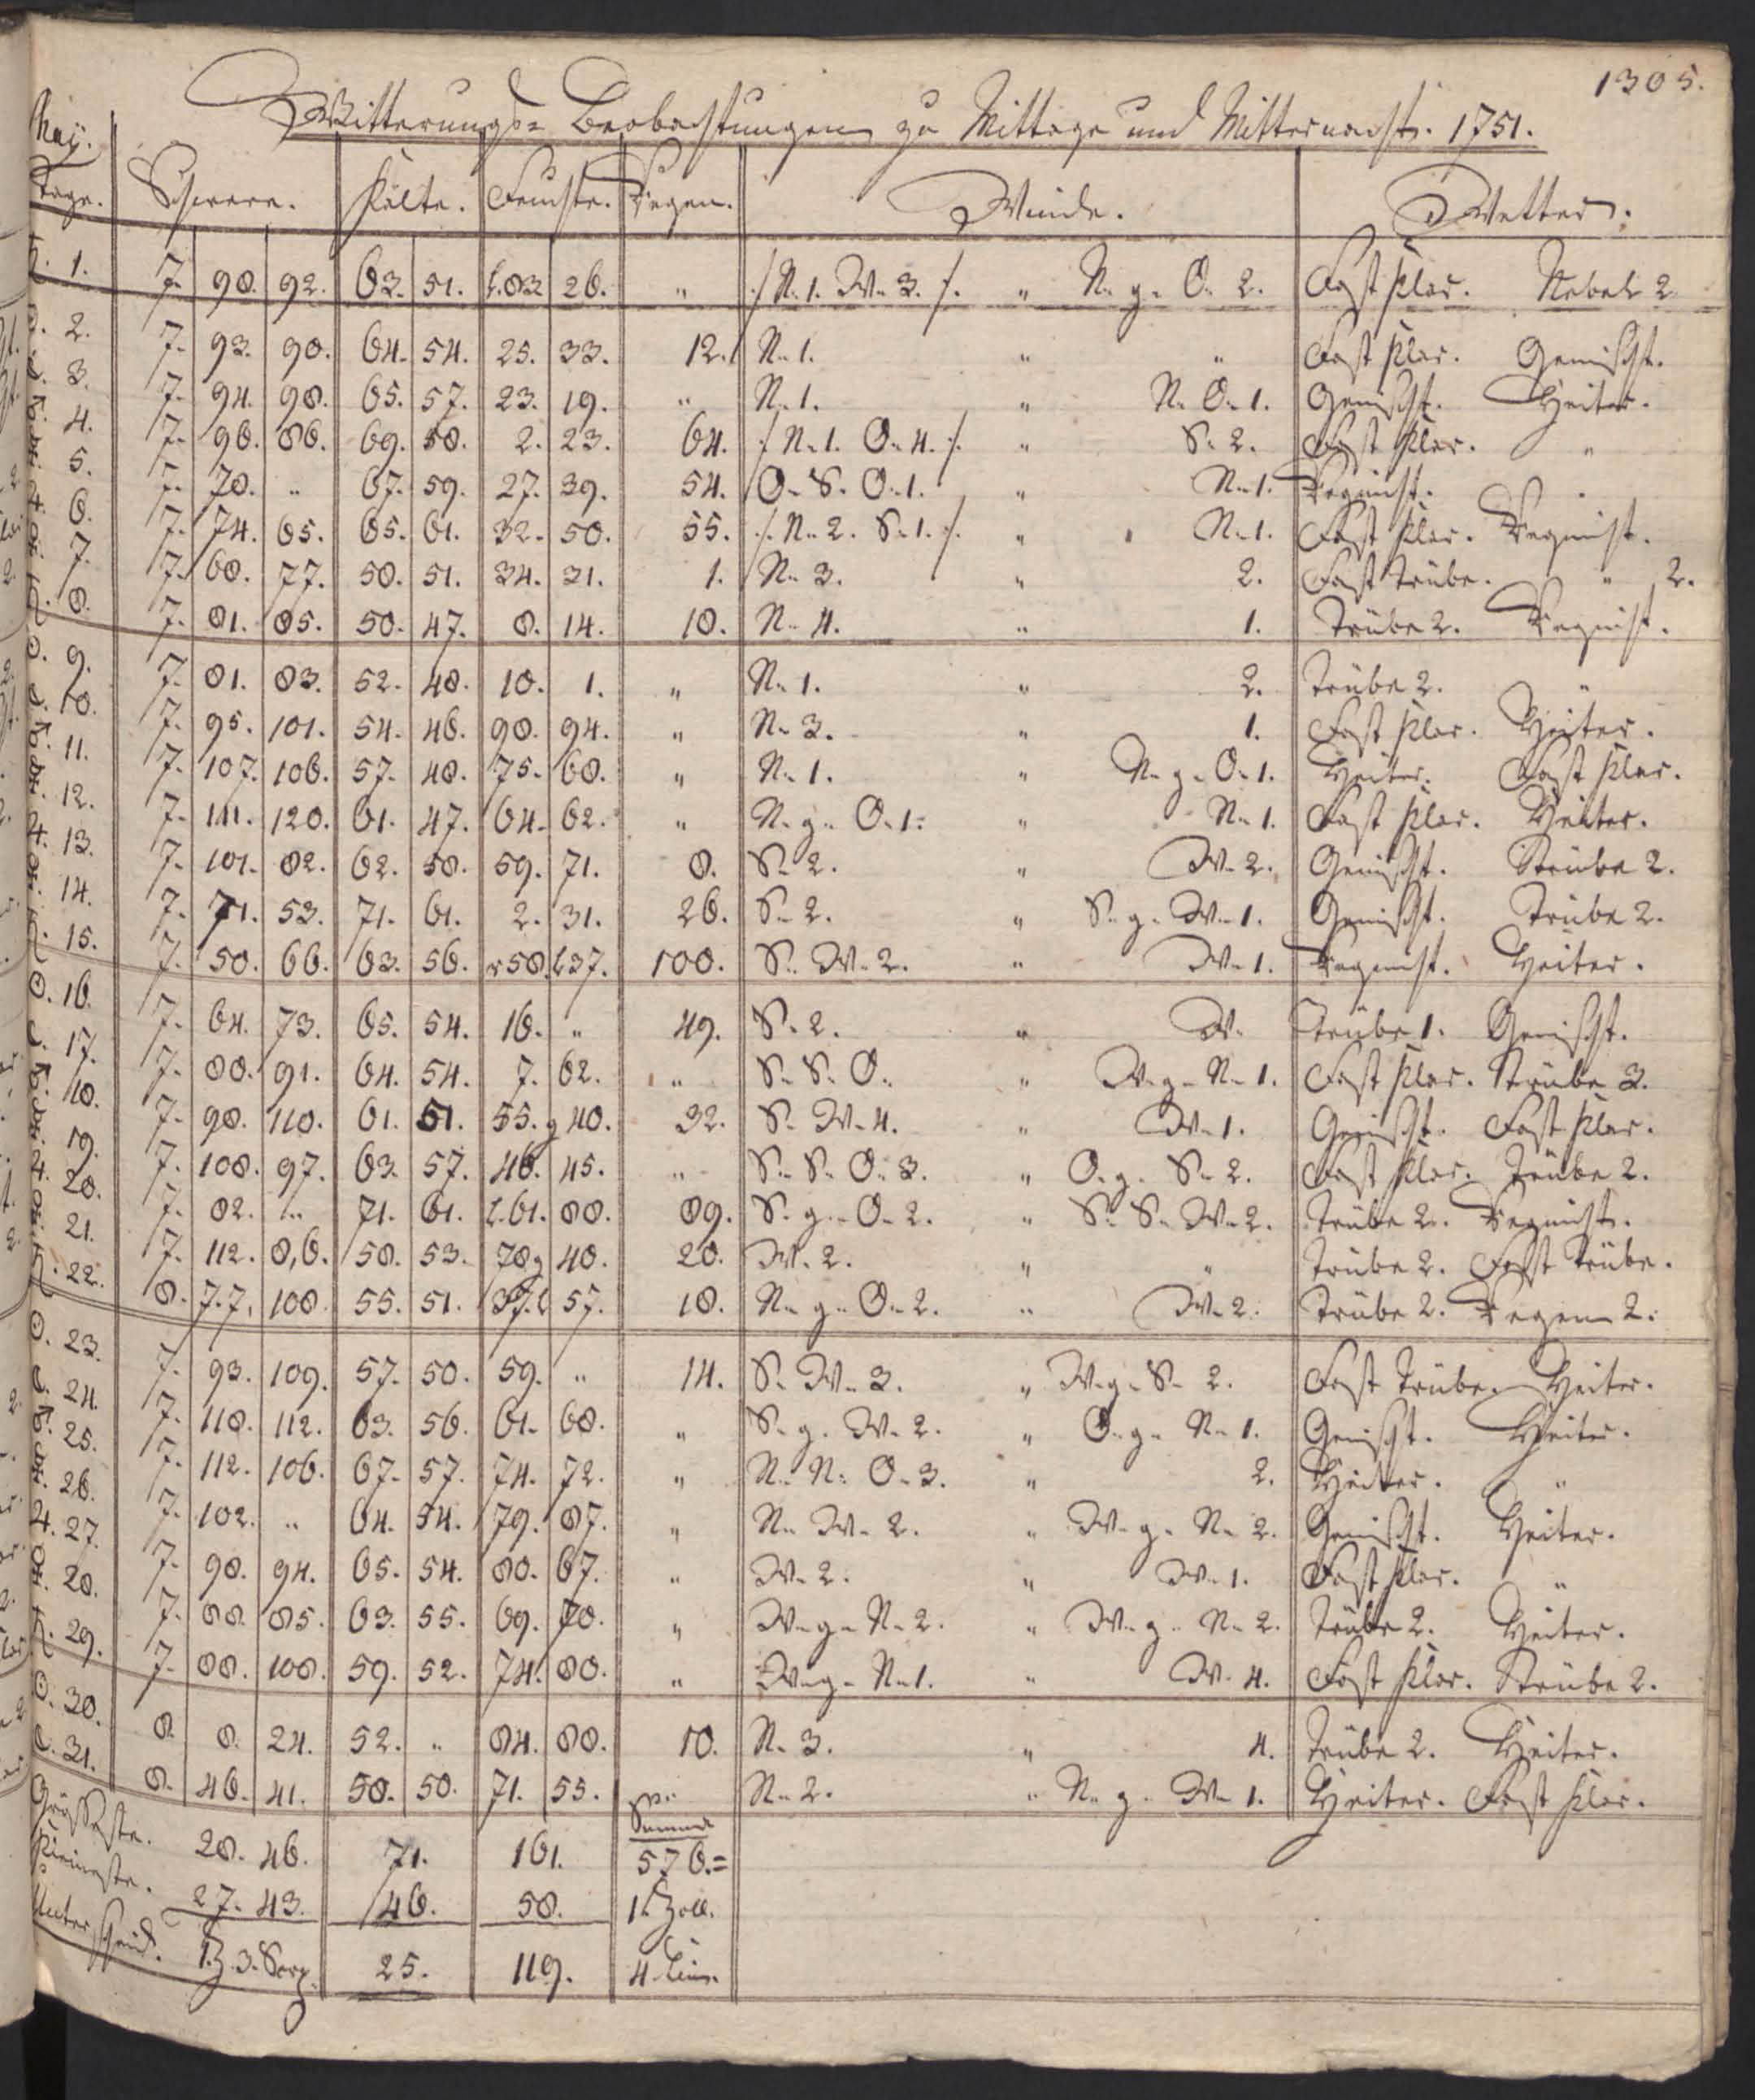 1305.
Witterungs= Beobachtungen zu Mittage und Mitternacht. 1751.
May.
Tage. Schwere. Kälte. Feuchte. Regen. Winde. Wetter.
♄. 1. 7. 98. 92. 63. 51. l.83. 26. „ ./N. 1. W. 3./. „ N. g. O. 2. Fast klar. Nebel 2
☉. 2. 7. 93. 90. 64. 54. 25. 33. 12. N. 1. „ „ Fast klar. Gemischt.
☾. 3. 7. 94. 98. 65. 57. 23. 19. „ N. 1. „ N. O. 1. Gemischt. Heiter.
♂. 4. 7. 96. 86. 69. 58. 2. 23. 64. ./N. 1. O. 4./. „ S. 2. Fast klar. „
☿. 5. 7. 78. „ 67. 59. 27. 39. 54. O. S. O. 1. „ N. 1. Regnicht. „
♃. 6. 7. 74. 65. 65. 61. 32. 50. 55. ./N. 2. S. 1./. „ N. 1. Fast klar. Regnicht.
♀. 7. 7. 68. 77. 58. 51. 34. 31. 1. N. 3. „ 2. Fast trübe. „ 2.
♄. 8. 7. 81. 85. 50. 47. 8. 14. 18. N. 4. „ 1. Trübe 2. Regnicht.
☉. 9. 7. 81. 83. 52. 48. 10. 1. „ N. 1. „ 2. Trübe 2. „
☾. 10. 7. 95. 101. 54. 46. 98. 94. „ N. 3. „ 1. Fast klar. Heiter.
♂. 11. 7. 107. 106. 57. 48. 75. 68. „ N. 1. „ N. g. O. 1. Heiter. Fast klar.
☿. 12. 7. 111. 120. 61. 47. 64. 62. „ N. g. O. 1. „ N. 1. Fast klar. Heiter.
♃. 13. 7. 101. 82. 62. 58. 59. 71. 8. S. 2. „ W. 2. Gemischt. Strübe 2.
♀. 14. 7. 71. 53. 71. 61. 2. 31. 26. S. 2. „ S. g. W. 1. Gemischt. Trübe 2.
♄. 15. 7. 50. 66. 63. 56. r58. l37. 100. S. W. 2. „ W. 1. Regnicht. Heiter.
☉. 16. 7. 64. 73. 65. 54. 16. „ 49. S. 2. „ W. Trübe 1. Gemischt.
☾. 17. 7. 88. 91. 64. 54. 7. 62. „ S. S. O. „ W. g. N. 1. Fast klar. Strübe 3.
♂. 18. 7. 98. 110. 61. 51. 55. g 40. 32. S. W. 4. „ W. 1. Gemischt. Fast klar.
☿. 19. 7. 108. 97. 63. 57. 46. 45. „ S. S. O. 3. „ O. g. S. 2. Fast klar. Trübe 2.
♃. 20. 7. 82. „ 71. 61. l.61. 88. 89. S. g. O. 2. „ S. S. W. 2. Trübe 2. Regnicht.
♀. 21. 7. 112. 8,6. 58. 53. 78g 40. 20. W. 2. „ „ Trübe 2. Fast trübe.
♄. 22. 8. 7.7. 108. 55. 51. 37.l 57. 18. N. g. O. 2. „ W. 2. Trübe 2. Regen 2.
☉. 23. 7. 93. 109. 57. 50. 59. „ 14. S. W. 3. „ W. g. S. 2. Fast trübe. Heiter.
☾. 24. 7. 118. 112. 63. 56. 61. 68. „ S. g. W. 2. „ O. g. N. 1. Gemischt. Heiter.
♂. 25. 7. 112. 106. 67. 57. 74. 72. „ N. N. O. 3. „ 2. Heiter. „
☿. 26. 7. 102. „ 64. 54. 79. 87. „ N. W. 2. „ W. g. N. 2. Gemischt. Heiter.
♃. 27. 7. 98. 94. 65. 54. 80. 67. „ W. 2. „ W. 1. Fast klar. „
♀. 28. 7. 88. 85. 63. 55. 69. 70. „ W. g. N. 2. „ W. g. N. 2. Trübe 2. Heiter.
♄. 29. 7. 88. 108. 59. 52. 74. 80. „ W. g. N. 1. „ W. 4. Fast klar. Strübe 2.
☉. 30. 8. 8. 24. 52. „ 84. 88. 10. N. 3. „ 4. Trübe 2. Heiter.
☾. 31. 8. 46. 41. 58. 50. 71. 55. „ N. 2. „ N. g. W. 1. Heiter. Fast klar.
Summe
Größeste. 28. 46. 71. 161. 576.=
Kleineste. 27. 43. 46. 50. 1. Zoll.
Unterscheid. 1.Z. 3. Scrp. 25. 119. 4. Lin.